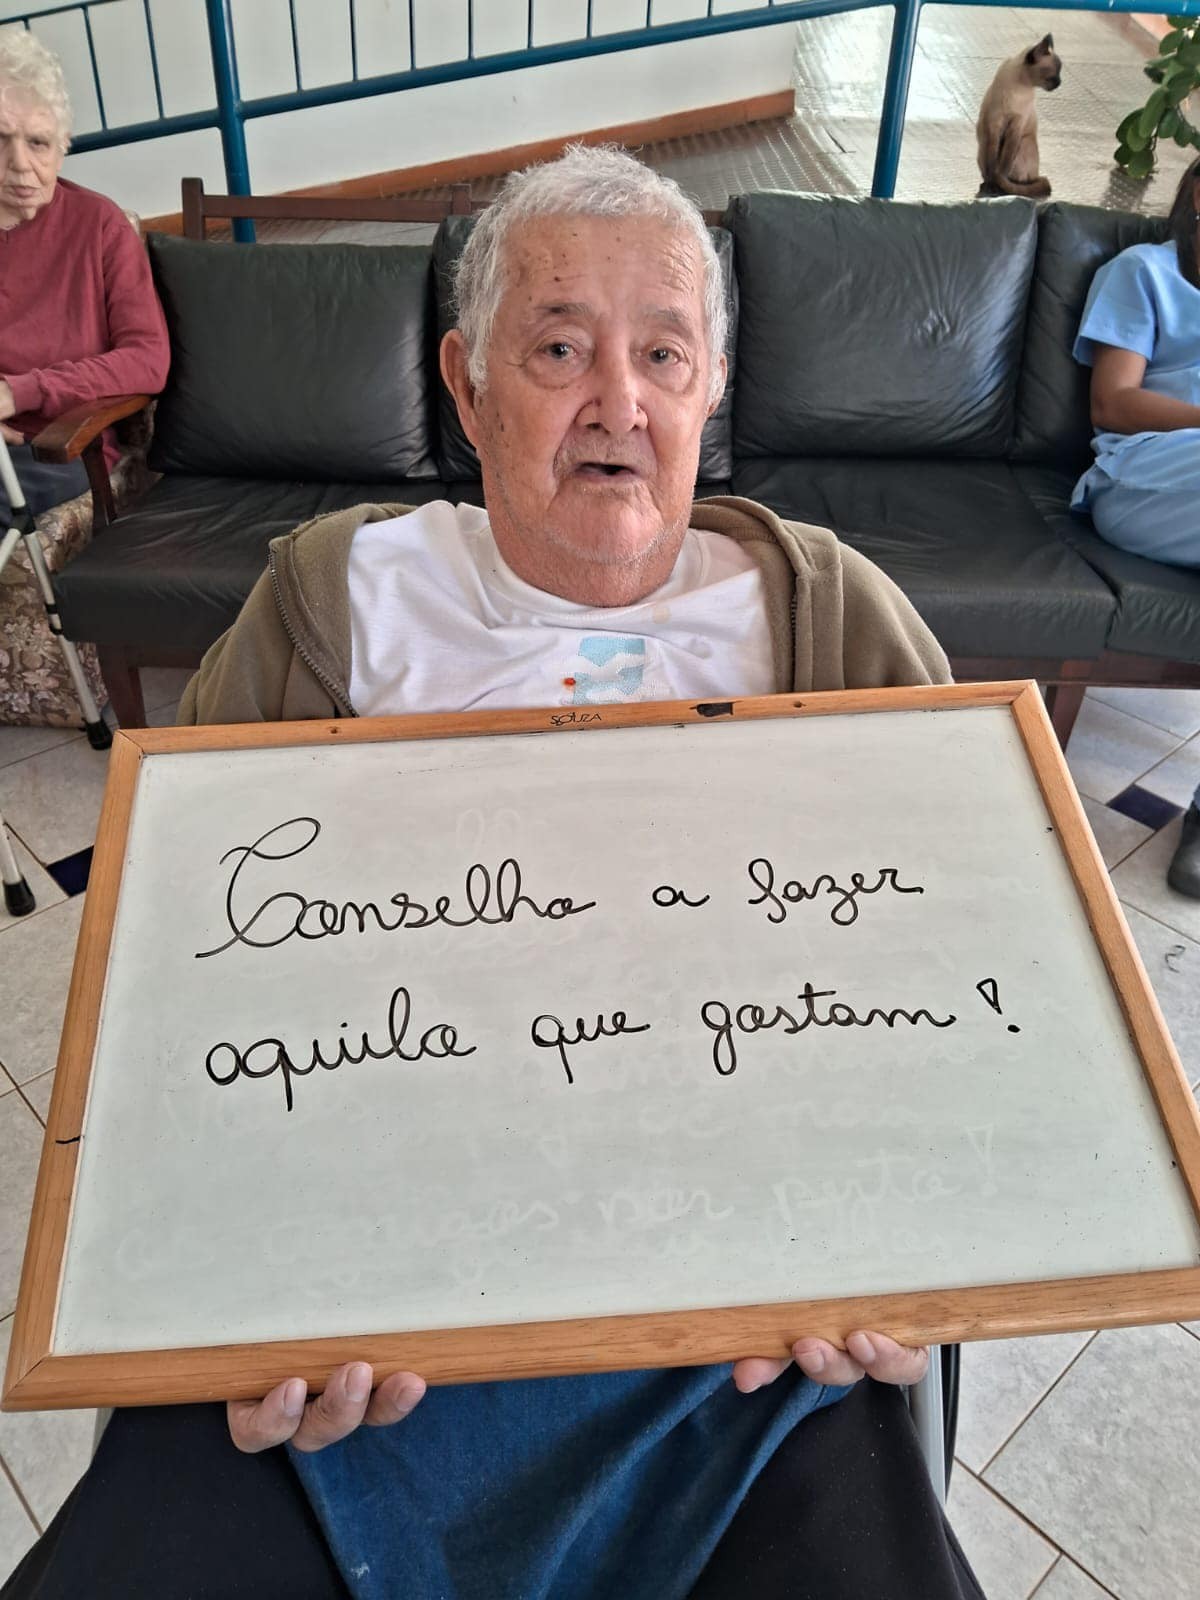 SOUZA
Conselho a fazer
aquilo que gostam!